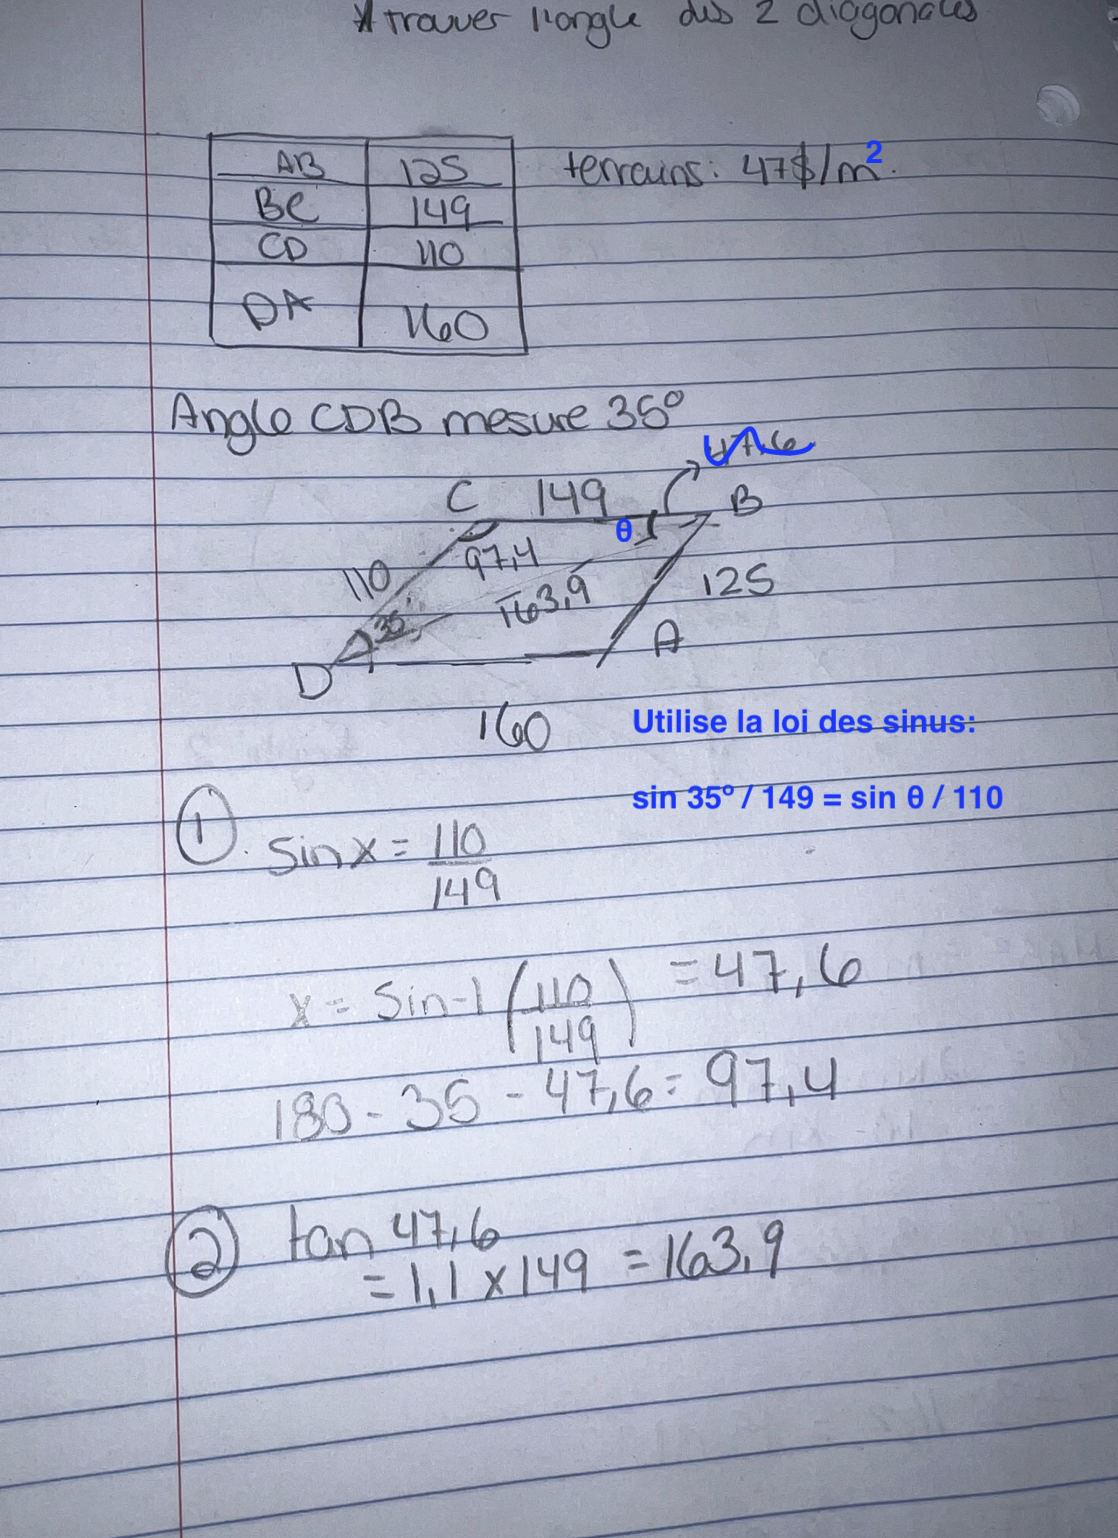 * trouver l'angle des 2 diagonales
AB 125
BC 149
CD 110
DA 160
terrains: 47$/m².
Angle CDB mesure 35°
47,6
C 149 B
θ
110 97,4
163,9 125
35
D A
160
Utilise la loi des sinus:
sin 35º / 149 = sin θ / 110
① sin x = 110/149
x = sin-1 (110/149) = 47,6
180 - 35 - 47,6 = 97,4
② tan 47,6
= 1,1 x 149 = 163,9